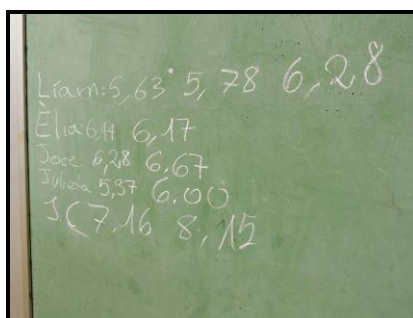 Líam: 5,63 5,78 6,28
Èlia 6,14 6,17
Joce 6,28 6.67
5,37 6.00
J.C 7,16 8,15